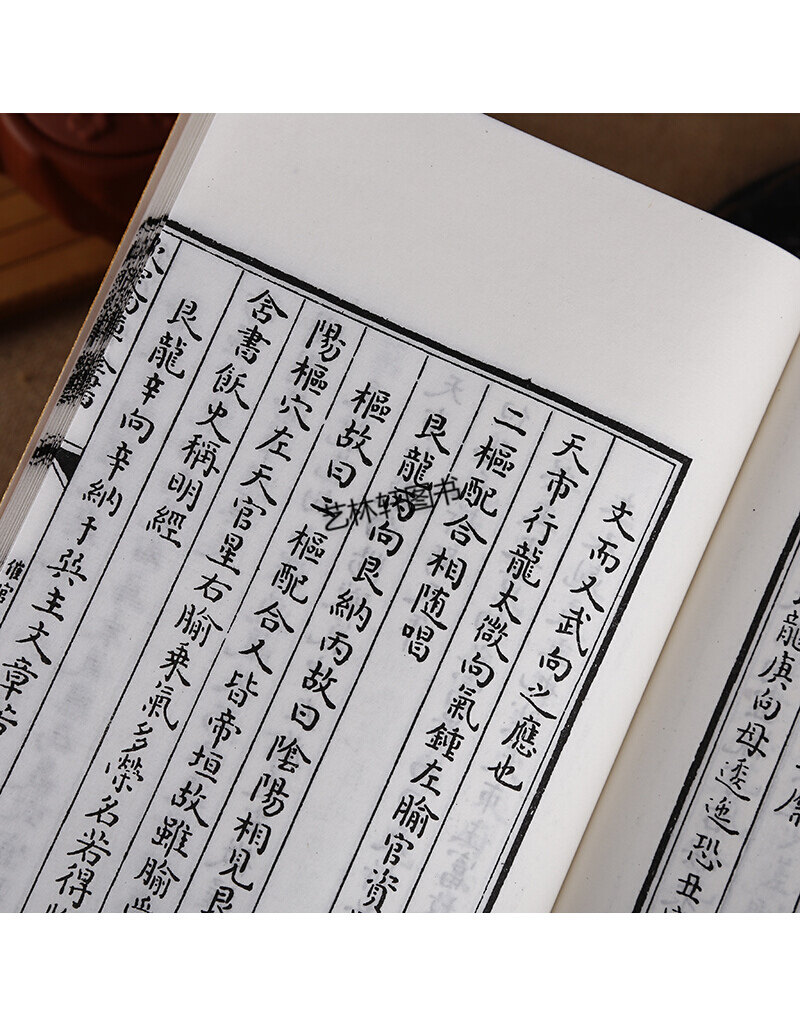 龍庚向母逶迤恐丑
文而又武向之應也
天市行龍太微向氣鍾左腧官資
二樞配合相随唱
艮龍向艮納丙故曰陰陽相見艮
樞故曰二樞配合又皆帝垣故雖腧
陽樞穴左天官星右腧乘氣多榮名若得
舍書飫史稱明經
艮龍辛向辛納于巽主文章
催官
艺林轩图书